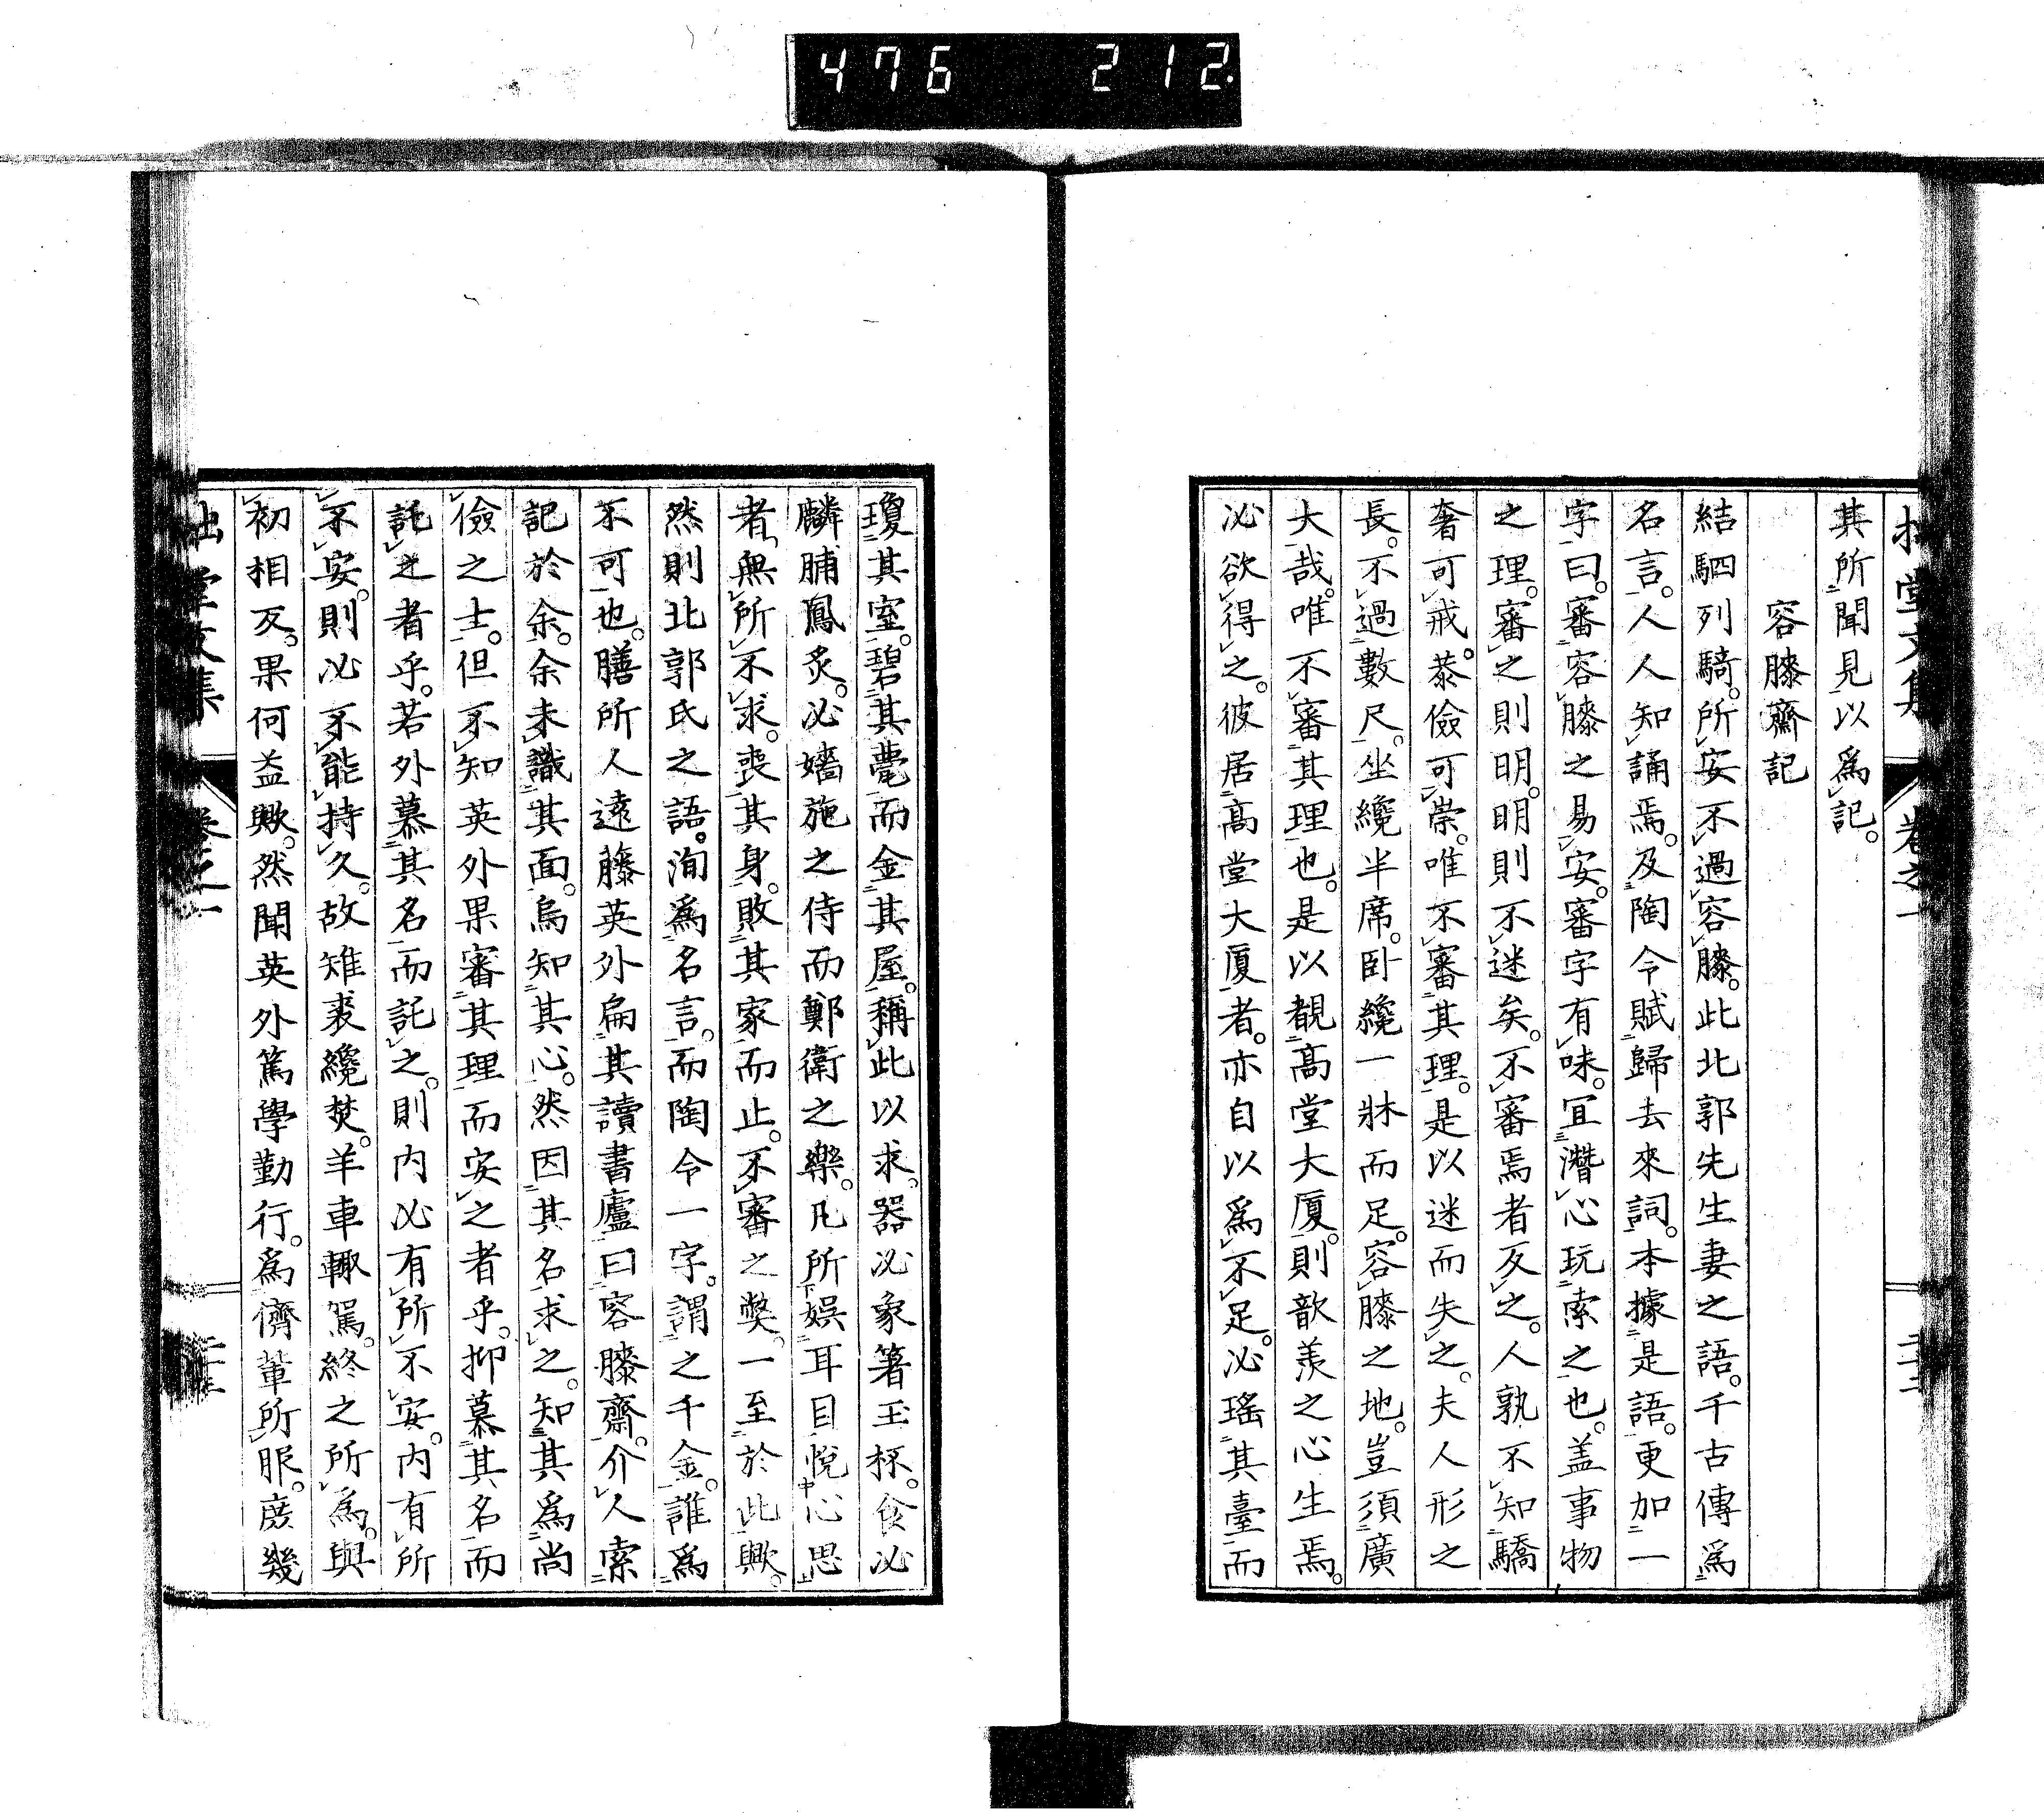 476 212
拙堂文集 卷之一 二十二
其所聞見以為記。
容膝齋記
結駟列騎。所安不過容膝。此北郭先生妻之語。千古傳為
名言。人人知誦焉。及陶令賦歸去來詞。本據是語。更加一
字曰。審容膝之易安。審字有味。宜潛心玩索之也。盖事物
之理。審之則明。明則不迷矣。不審焉者反之。人孰不知驕
奢可戒。恭儉可崇。唯不審其理。是以迷而失之。夫人形之
長。不過數尺。坐纔半席。臥纔一牀而足。容膝之地。豈須廣
大哉。唯不審其理也。是以覩高堂大厦。則歆羨之心生焉。
必欲得之。彼居高堂大厦者。亦自以為不足。必瑤其臺而
瓊其室。碧其甍而金其屋。稱此以求。器必象箸玉杯。食必
麟脯鳳炙。必嬙施之侍而鄭衛之樂。凡所娛耳目悅心思
者。無所不求。喪其身。敗其家而止。不審之獘。一至於此歟。
然則北郭氏之語。洵為名言。而陶令一字。謂之千金。誰為
不可也。膳所人遠藤英外扁其讀書廬曰容膝齋。介人索
記於余。余未識其面。烏知其心。然因其名求之。知其為尚
儉之士。但不知英外果審其理而安之者乎。抑慕其名而
託之者乎。若外慕其名而託之。則內必有所不安。內有所
不安。則必不能持久。故雉裘纔焚。羊車輙駕。終之所為。與
初相反。果何益歟。然聞英外篤學勤行。為儕軰所服。庻幾
拙堂文集 卷之一